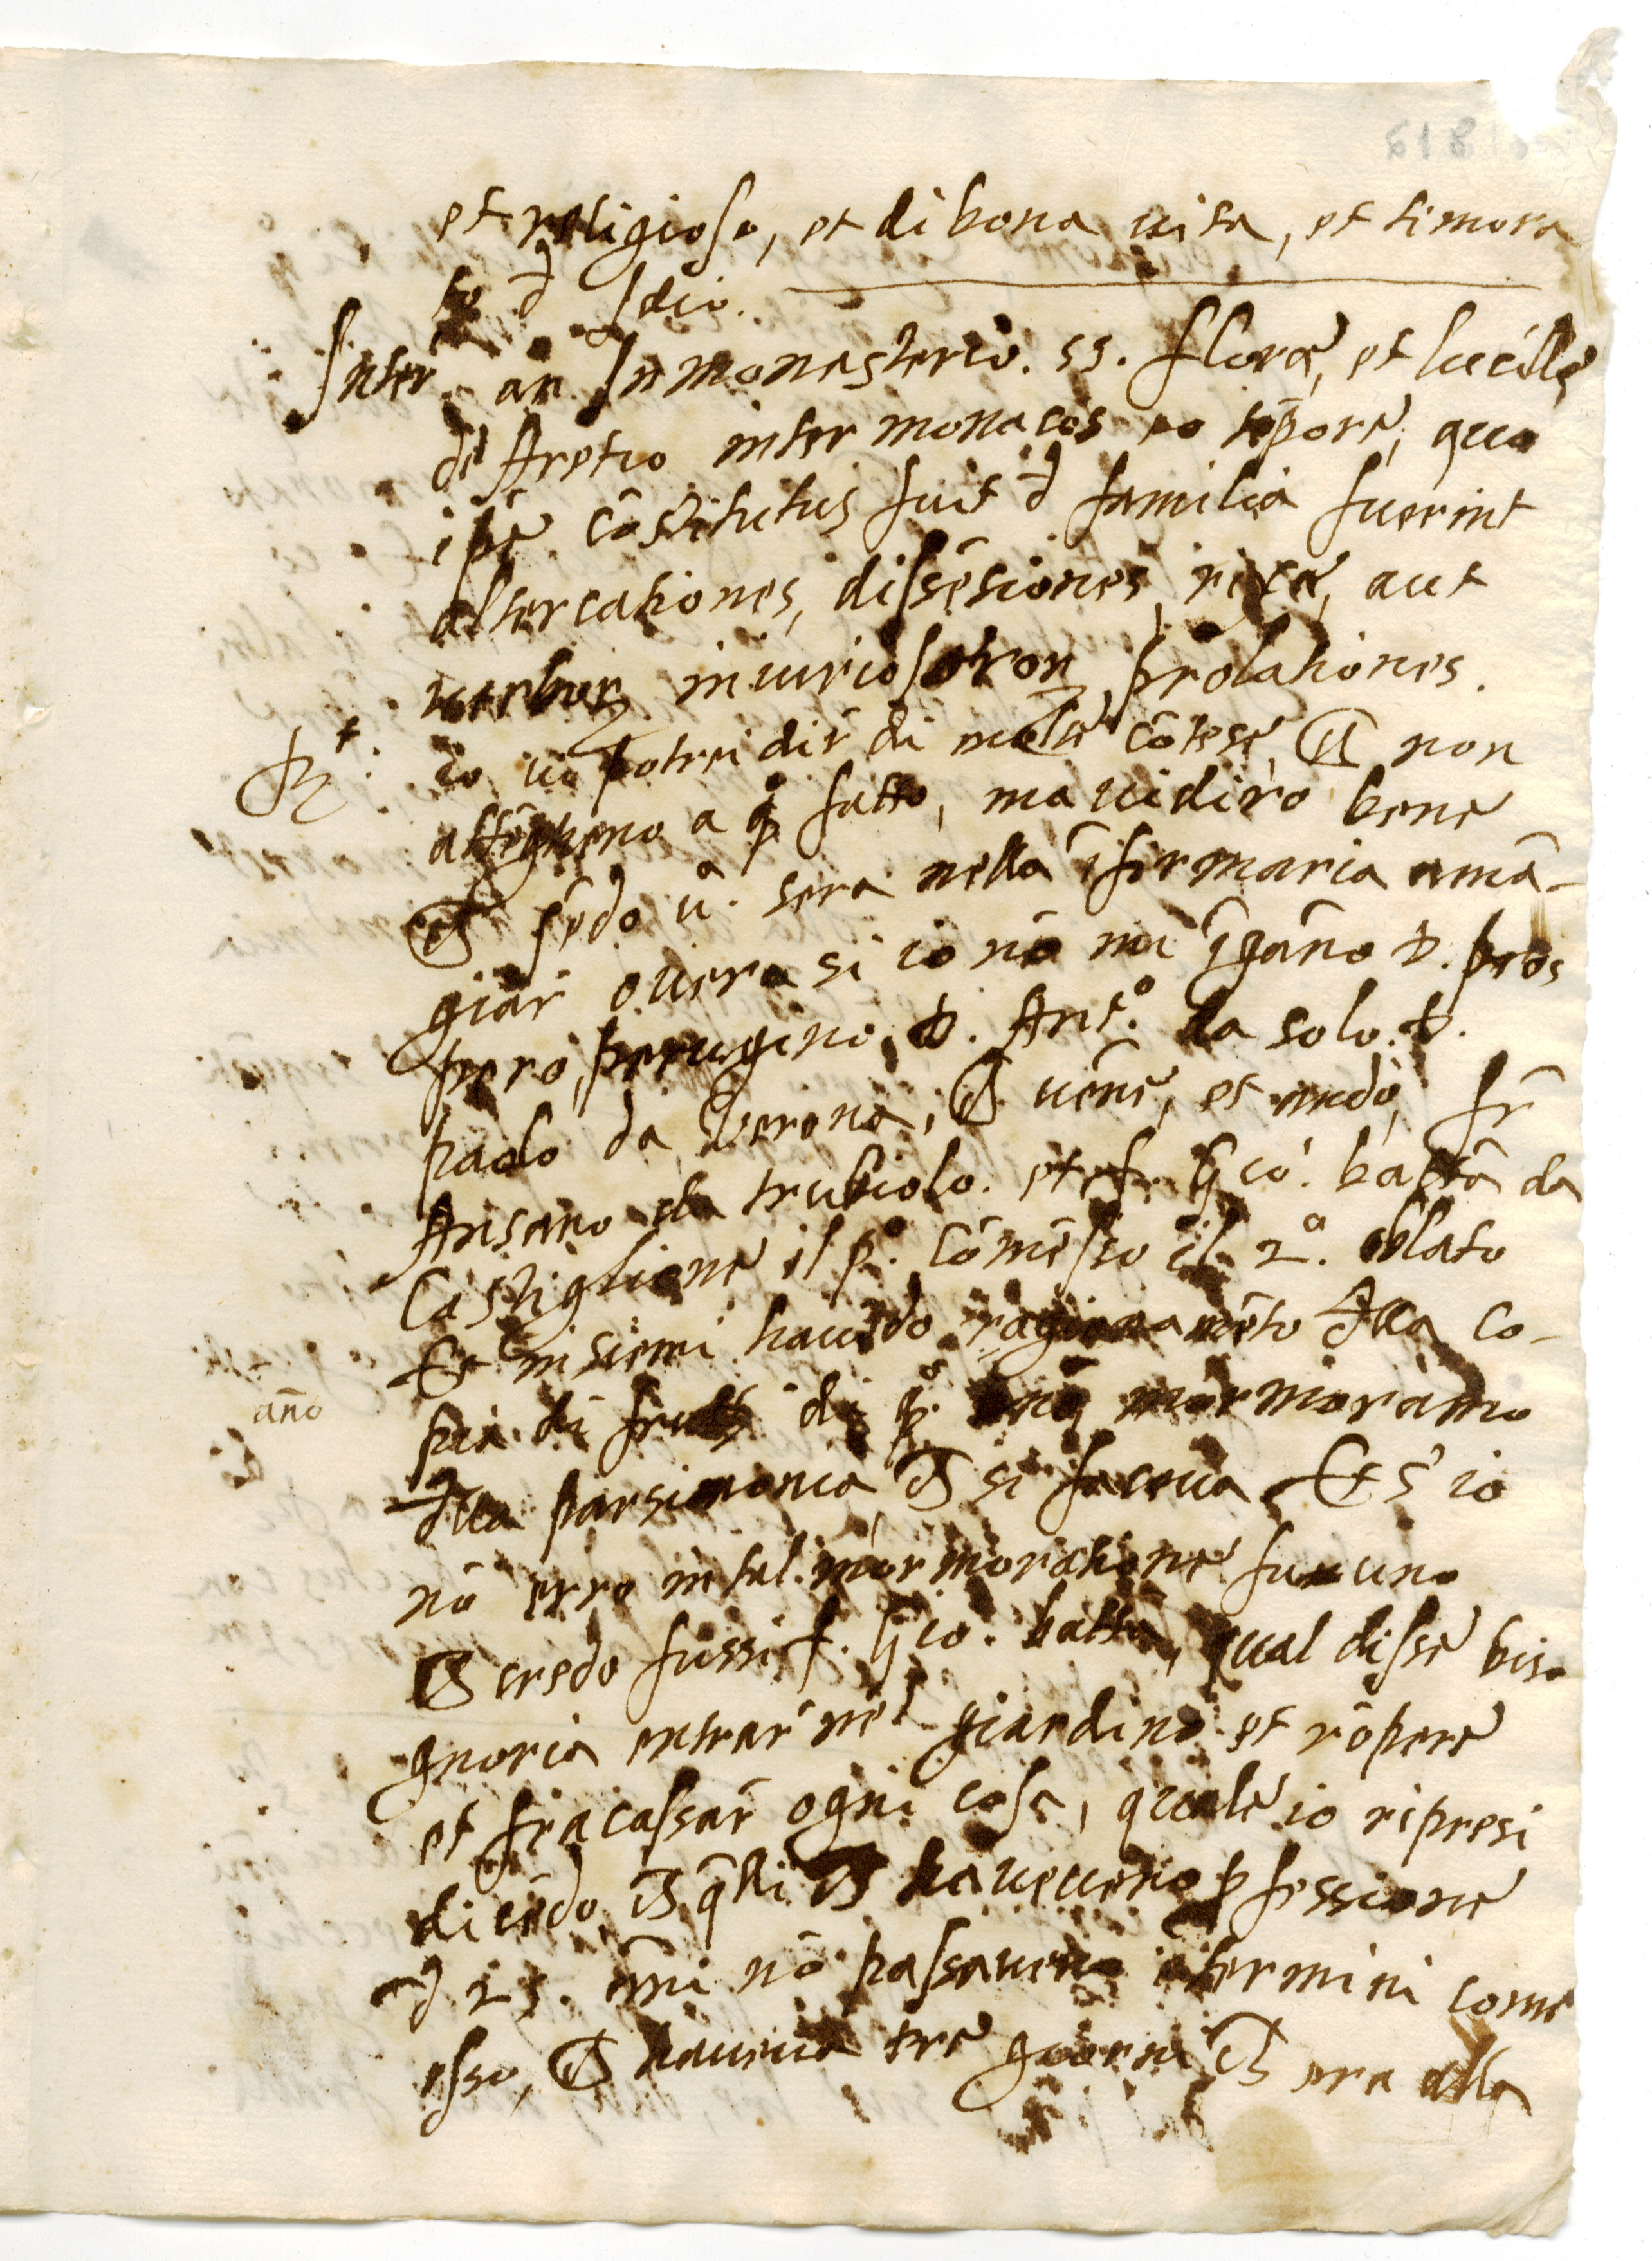 et religioso, et di bona uita, et timora
to d̄ Idio.
Inter. an In monasterio. ss. florae, et lucille
de Aretio inter monacos eo tēpore, quo
ipse cōstitutus fuit d̄ familia fuerint
altercationes, dissēsiones, rixae, aut
uerborꝫ iniuriosorꝫ prolationes.
Rt. io ui potrei dir̄ di molte cōtese, chē non
attēgheno a qo fatto, ma ui dirò bene
chē sēdo ua. sera nella īfirmaria a mā-
giar ouero si io nō mi īgāno D. pros
pero perugino, D. Anto. da solo. D.
paolo da Verona, chē uēne, et andò, fr̄
Ansano da trubiolo. et f. Gio. battā da
Castiglione il po. cōmesso il 2o. oblato
Et insiemi hauēdo ragionamēto d̄lla co-
pia di frutti di qo. mormoramo
año
d̄lla parsimonia chē si faceua Et s' io
nō erro in tal mormoratione fu uno
chē credo fussi f. Gio. batta, qual disse biso
gnoria entrar nel giardino et rōpere
et fracassar̄ ogni cosa, quale io ripresi
dicēdo chē q̄lli chē haueueno ꝓfessione
d̄ 25. āni nō passaueno i termini come
esso, chē haueua tre giorni chē era alla